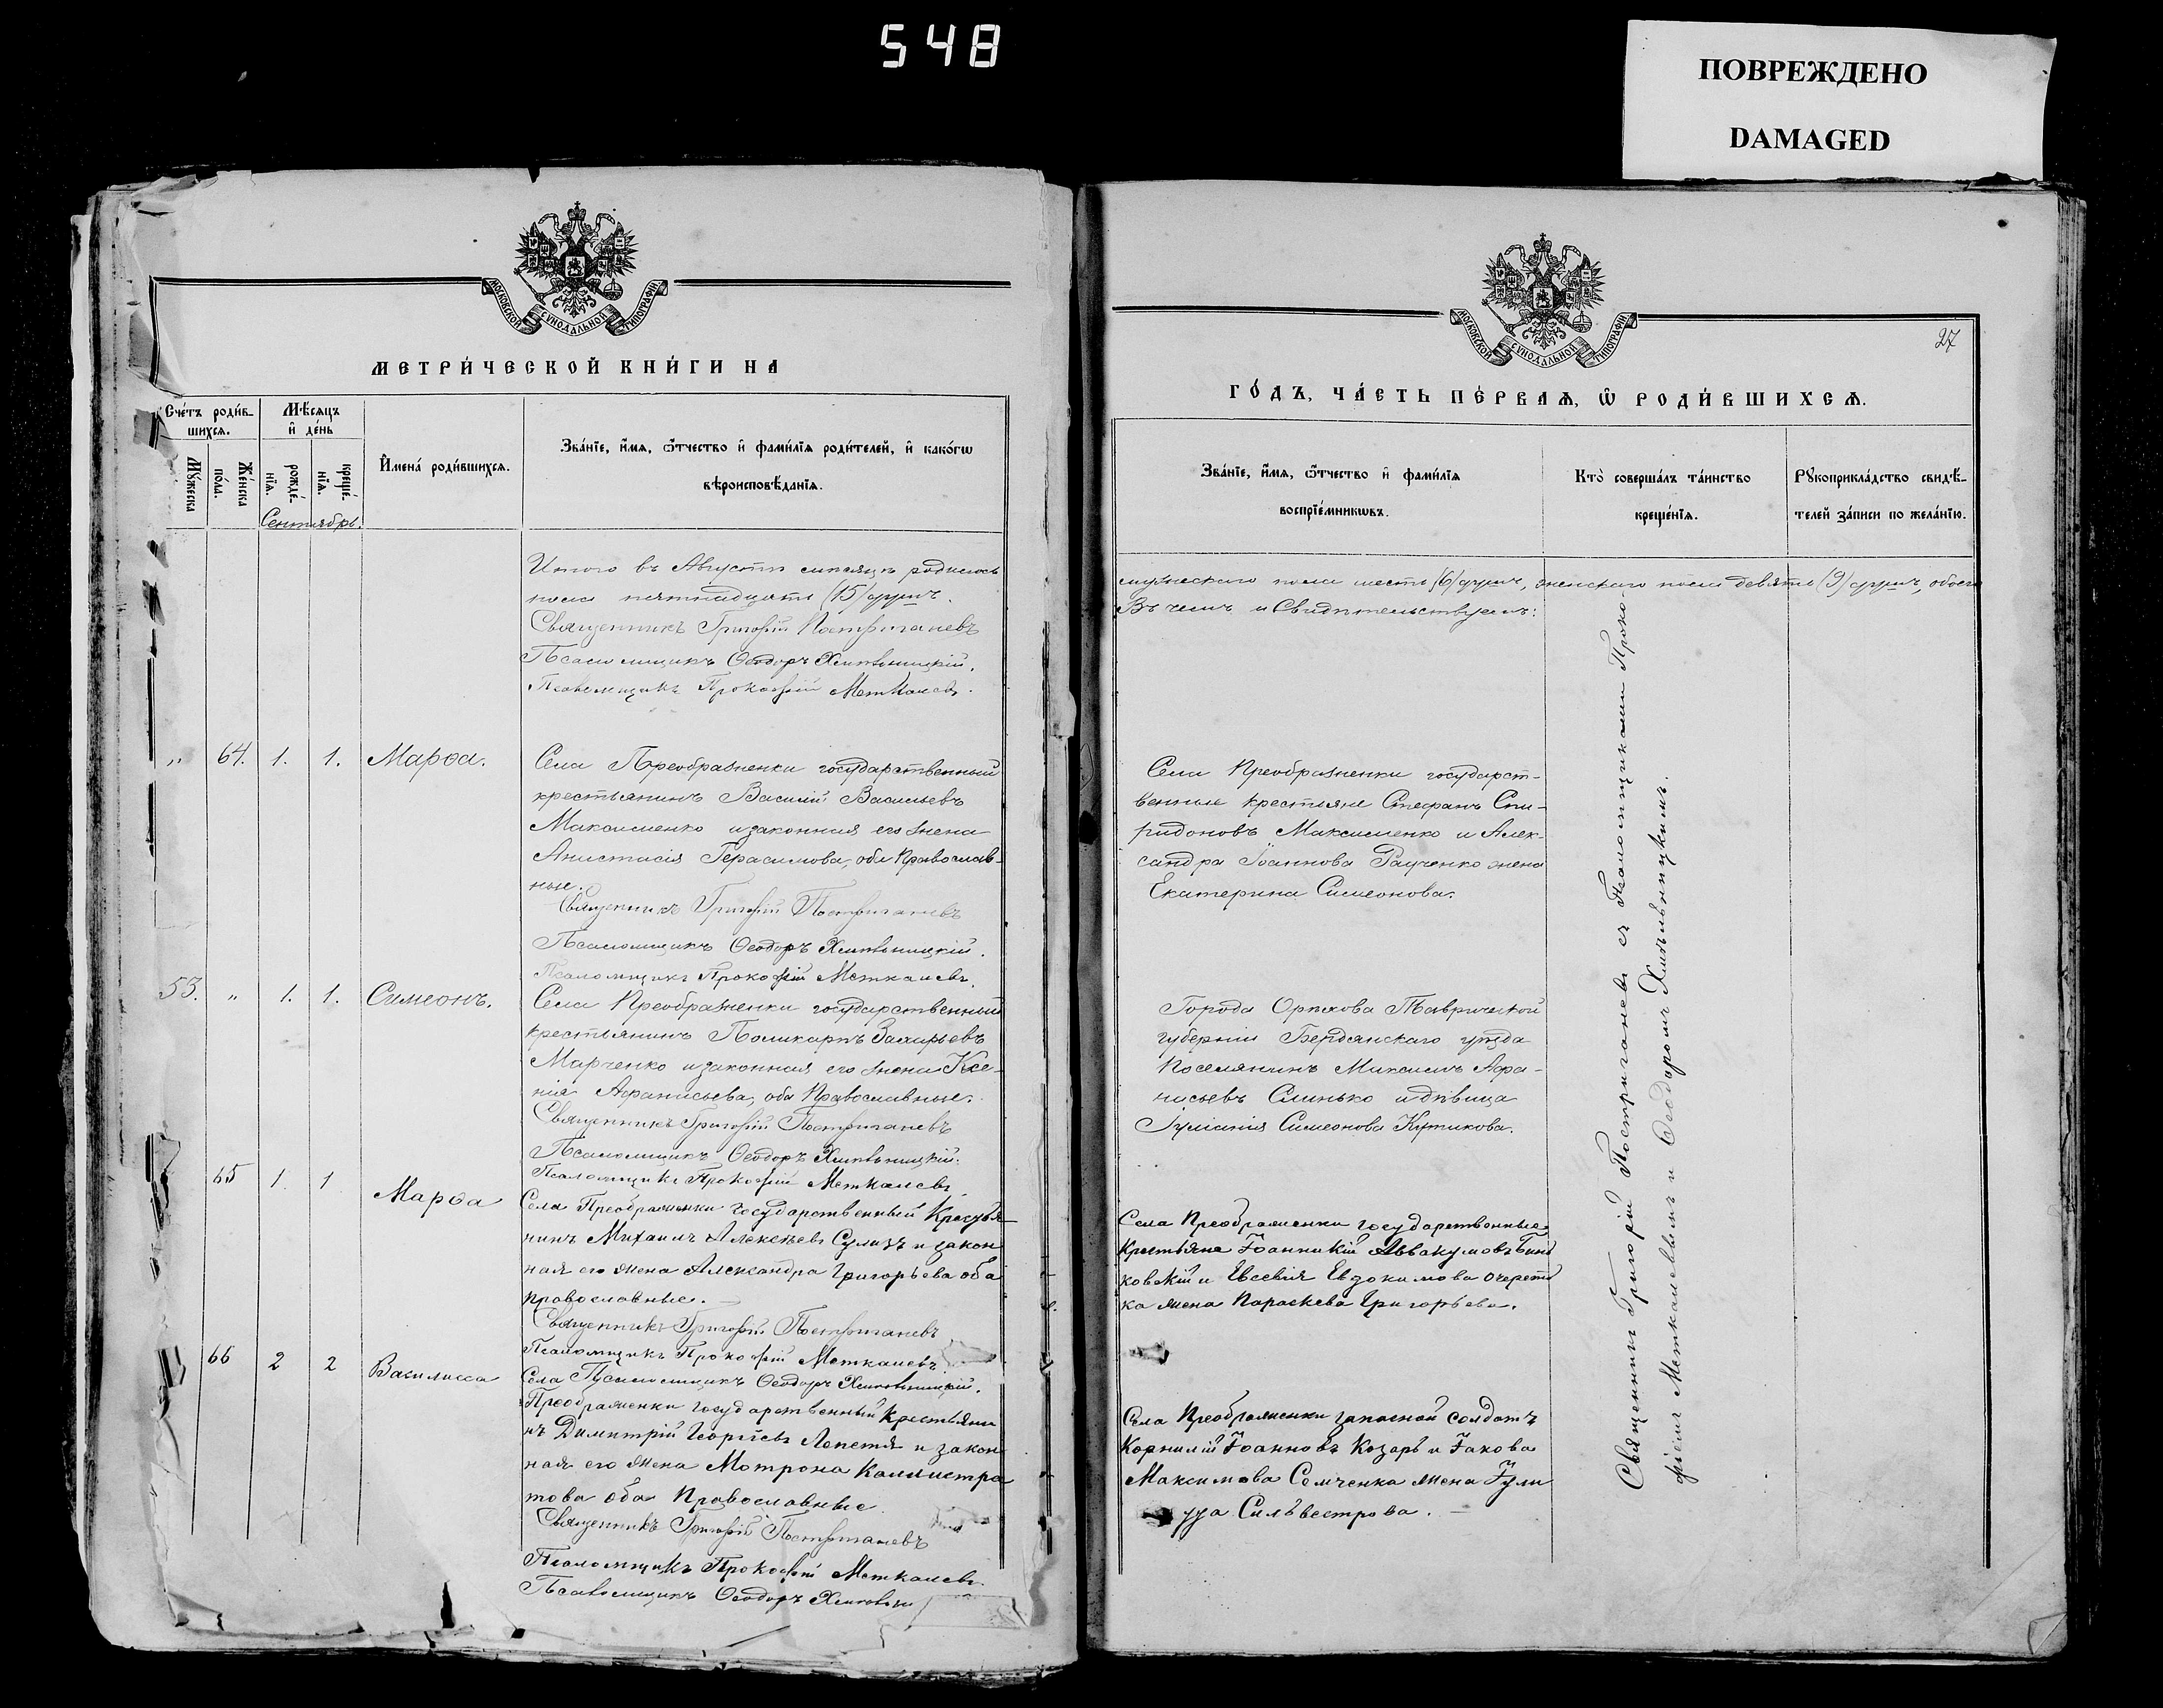 548
ПОВРЕЖДЕНО
DAMAGED
МОСКОВСКОЙ СѴНОДАЛЬНОЙ ТИПОГРАФІИ
МЕТРИ́ЧЕСКОЙ КНИ́ГИ НА
Сче́тъ роди́в-
шихсѧ.
Мꙋ́жеска
Же́нска
по́ла.
Мѣ́сѧцъ
и҆ де́нь
рожде́-
нїѧ.
креще́-
нїѧ.
Сентябрь.
И҆мена̀ роди́вшихсѧ.
Зва́нїе, и҆́мѧ, ѻ҆́тчество и҆ фами́лїѧ роди́телей, и҆ како́гѡ
вѣроисповѣ́данїѧ.
Итого въ Августѣ мѣсяцѣ родилось
пола пятнадцать (15) душъ.
Священникъ Григорій Постригачевъ
Псаломщикъ Ѳеодоръ Хмѣльницкій.
Псаломщикъ Прокофій Меткалевъ.
„ 64. 1. 1. Марѳа.
Села Преображенки государственный
крестьянинъ Василій Васильевъ
Максименко и законная его жена
Анастасія Герасимова, оба Православ-
ные.
Священникъ Григорій Постригачевъ
Псаломщикъ Ѳеодоръ Хмѣльницкій.
Псаломщикъ Прокофій Меткалевъ.
53. „ 1. 1. Симеонъ.
Села Преображенки государственный
крестьянинъ Поликарпъ Захарьевъ
Марченко и законная его жена Ксе-
нія Аѳанасьева, оба Православные.
Священникъ Григорій Постригачевъ
Псаломщикъ Ѳеодоръ Хмѣльницкій.
Псаломщикъ Прокофій Меткалевъ
65 1. 1 Марѳа
Села Преображенки государственный Крестья-
нинъ Михаилъ Алексѣевъ и закон
ная его жена Александра Григорьева оба
православные.
Священникъ Григорій Постригачевъ
Псаломщикъ Прокофій Меткалевъ
66 2 2 Василисса
Села Псаломщикъ Ѳеодоръ Хмѣльницкій.
Преображенки государственный Крестьяни
нъ Димитрій Георгіевъ Лепетя и закон
ная его жена Матрона Каллистра
това оба Православные
Священникъ Григорій Постригачевъ
Псаломщикъ Прокофій Меткалевъ
Псаломщикъ Ѳеодоръ
МОСКОВСКОЙ СѴНОДАЛЬНОЙ ТИПОГРАФІИ
27
ГО́ДЪ, ЧА́СТЬ ПЕ́РВАѦ, Ѡ҆ РОДИ́ВШИХСѦ.
Зва́нїе, и҆́мѧ, ѻ҆́тчество и҆ фами́лїѧ
воспрїе́мникѡвъ.
Кто̀ соверша́лъ та́инство
креще́нїѧ.
Рꙋкоприкла́дство свидѣ́-
телей за́писи по жела́нїю.
мужескаго пола шесть (6) душъ, женскаго пола девять (9) душъ, обоего
Въ чемъ и Свидѣтельствуемъ:
Села Преображенки государст-
венные крестьяне Стефанъ Спи-
ридоновъ Максименко и Алек-
сандра Іоаннова Раученко жена
Екатерина Симеонова.
Города Орѣхова Таврической
губерніи Бердянскаго уѣзда
поселянинъ Максимъ Аѳа-
насьевъ Слинько и дѣвица
Іуліанія Симеонова Кутикова.
Села Преображенки государственные
Крестьяне Іоанникій Аввакумовъ
ковскій и Евсевія Евдокимова Очереть
ка жена Параскева Григорьева.
Села Преображенки запасной солдатъ
Корнилій Іоанновъ Козарь и Іакова
Максимова Семченка жена Іули
Сильвестрова.
Священникъ Григорій Постригачевъ съ Псаломщиками Проко-
фіемъ Меткалевымъ и Ѳеодоромъ Хмѣльницкимъ.